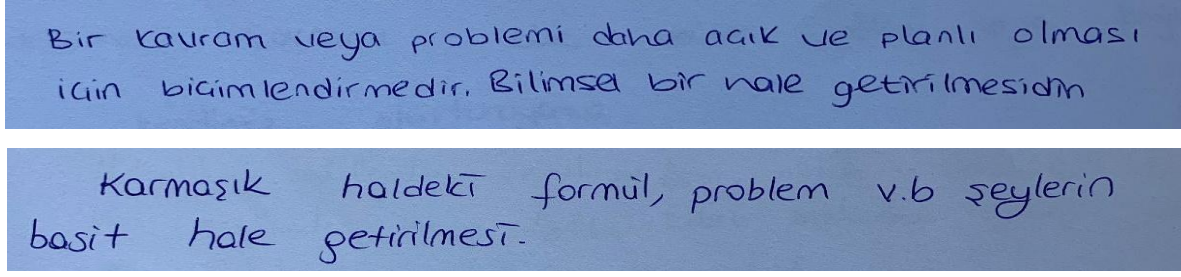 Bir kavram veya problemi daha açık ve planlı olması
için biçimlendirmedir. Bilimsel bir hale getirilmesidir
Karmaşık haldeki formül, problem v.b şeylerin
basit hale getirilmesi.